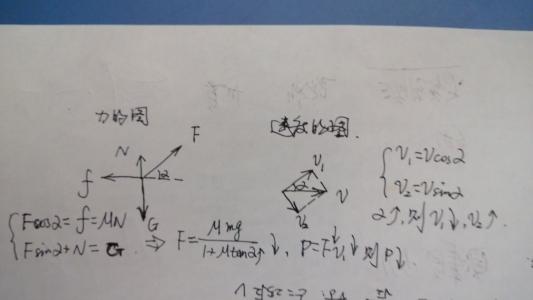 力的图
速度的图
N
F
f
α
G
V₁
α
V
V₂
V₁=Vcosα
V₂=Vsinα
α↑, 则 V₁↓, V₂↑.
Fcosα=f=μN
Fsinα+N=G ⇒ F=μmg/(1+μtanα↑)↓, P=F↓V₁↓ 则 P↓